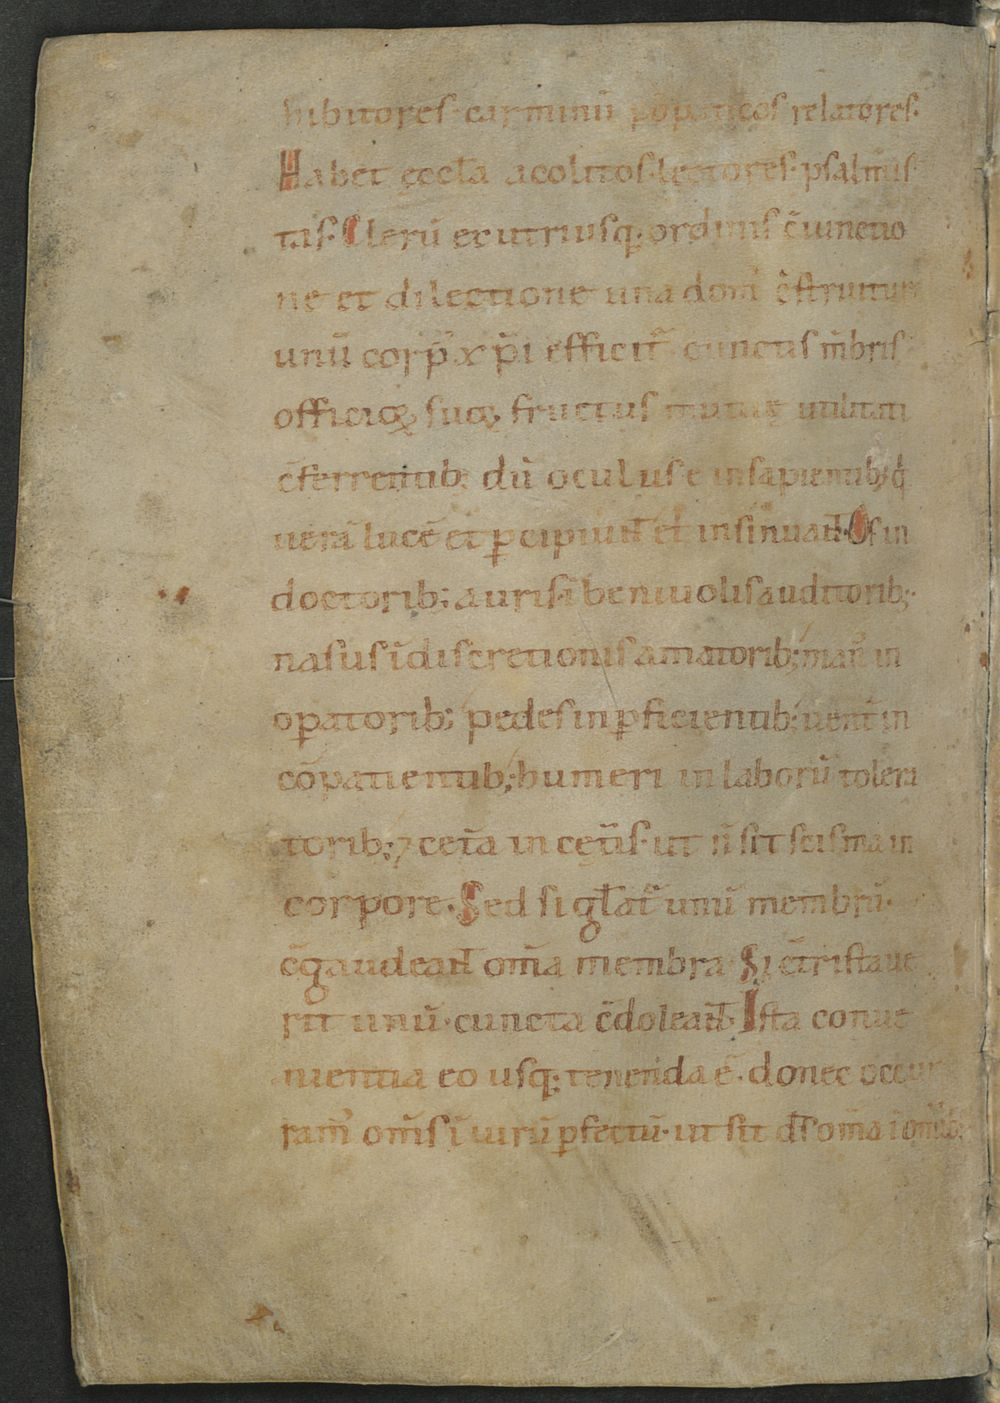 hibitores· carminū pōpaticos relatores·
Habet ęccła acolitos· lectores· psalmis
tas· Clerū ex utriusq; ordinis c̄iunctio
ne et dilectione una dom̄ c̄struitur
unū corp᷒ xp̄i efficit᷒ cunctis m̄bris
officioꝝ suoꝝ fructus mutuę utilitati
c̄ferrentib; dū oculus ē in sapientib; q̇
uerā lucē et ꝑcipiunt et insinuant· Os in
doctorib; auris ī beniuolis auditorib;·
nasus ī discretionis amatorib; man᷒ in
oꝑatorib; pedes in ꝓficientib; uent᷒ in
cōpatientib; humeri in laborū tolera
torib; ⁊ cet̄a in cęt̄is· ut ñ sit scisma in
corpore. Sed si głat᷒ unū membrū·
c̄gaudeant om̄a membra· Si c̄tristaue
rit unū· cuncta c̄doleant· Ista conue
nientia eo usq; tenenda ē· donec occur
ram᷒ om̄s ī uirū ꝑfectū· ut sit ds̄ om̄a ī om̄ib;